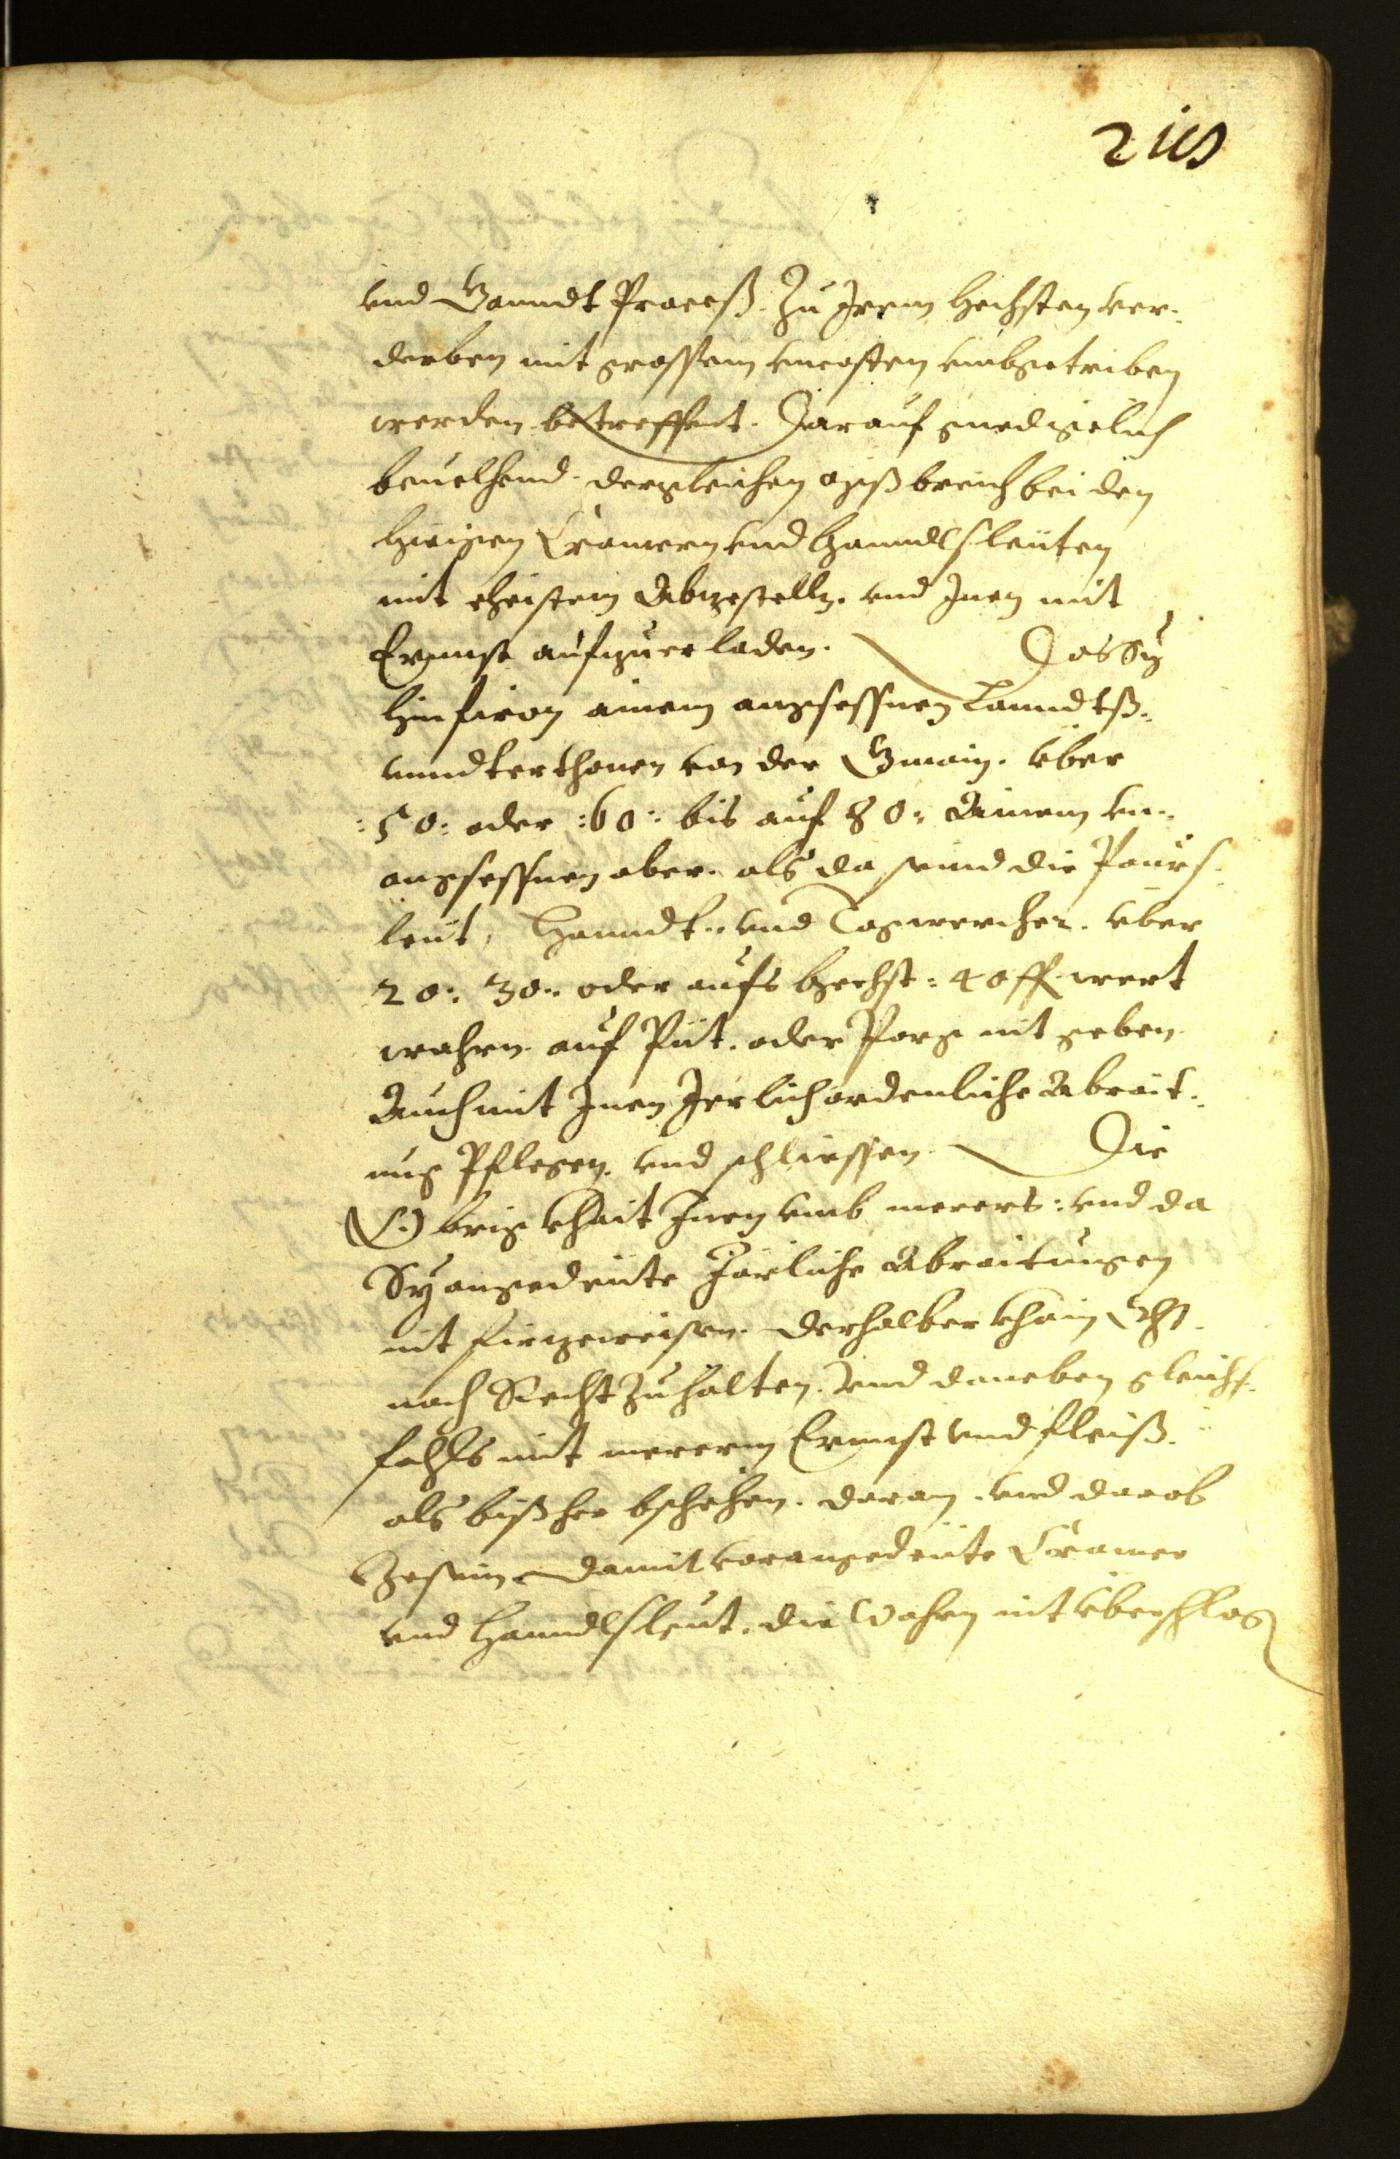 und Ganndt Process. Zu Irem hechsten ver-
derben mit grossem uncosten umbgetriben
werden betreffent. Darauf gnedigelich
beuelhend dergleichen missbreich bei den
hieigen Cramern und Hanndlsleüten
mit ehistem Abzestelln. und Inen mit
Ernnst aufzuerladen. Das Sÿ
hinfiron ainem angesessnen Lanndts-
unndterthonen von der Gmain. über
:50: oder :60: bis auf 80: Ainem un-
angesessnen aber. als da seind die Paurs-
leüt, Hanndt- und Tagwercher. über
20: 30: oder aufs hechst: 40 fl. wert
wahrn. auf Piit. oder Porg nit geben
Auch mit Inen Jerlich ordenliche Abrait-
ung Pflegen. und schliessen. Die
Obrigkhait Inen umb merers: und da
Sÿ angedeüte Järliche Abraitungen
nit firzeweisen. derhalben khain
noch Recht Zuhalten. und daneben gleichs-
fahls mit mererm Ernnst und fleiss.
als bissher bschehen. daran. und darob
Zesein. damit vorangedeüte Cramer
und Hanndlsleut. die Wahrn nit überschlag